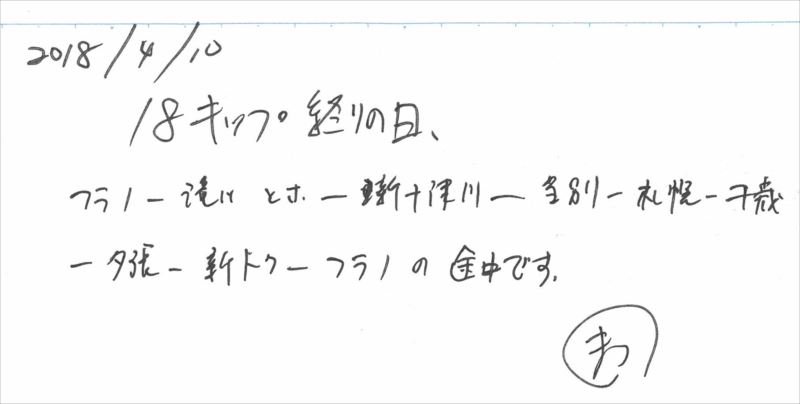 2018/4/10
18キップ終りの日、
フラノ–滝川 とホ–新十津川–当別–札幌–千歳
–夕張–新トク–フラノの途中です。